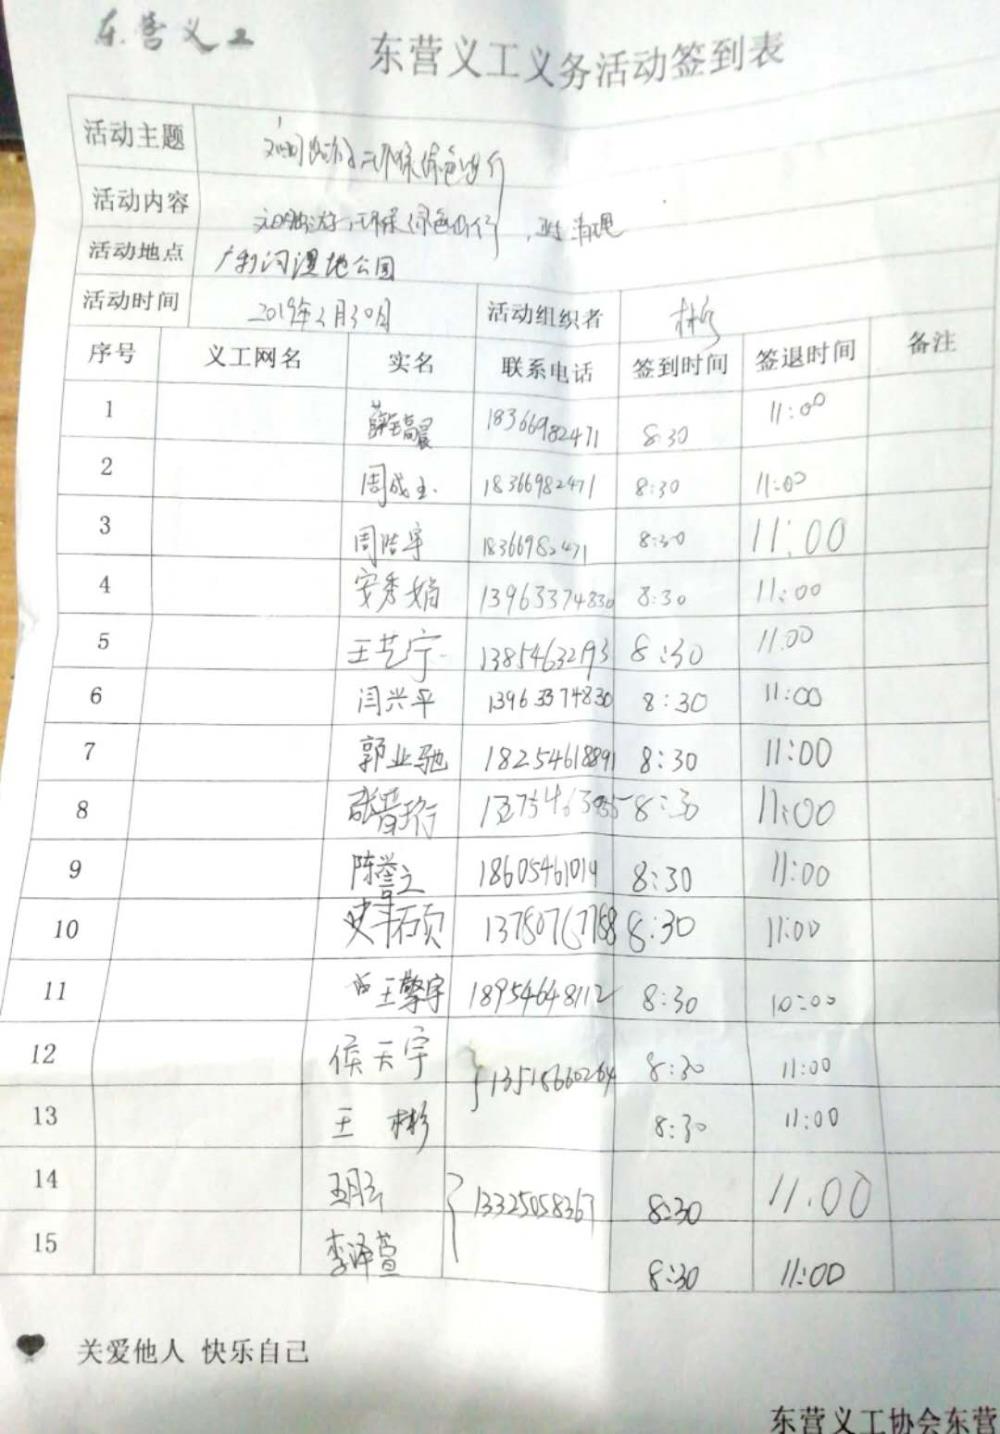 东营义工
东营义工义务活动签到表
活动主题 环保绿色出行
活动内容 环保绿色出行
活动地点 广利河湿地公园
活动时间 2019年 月30日 活动组织者 彬
序号 义工网名 实名 联系电话 签到时间 签退时间 备注
1 18366982471 8:30 11:00
2 周成玉 18366982471 8:30 11:00
3 周浩宇 18366982471 8:30 11:00
4 安秀娟 13963374830 8:30 11:00
5 王艺宁 13854632193 8:30 11:00
6 闫兴平 13963374830 8:30 11:00
7 郭业驰 18254618891 8:30 11:00
8 8:30 11:00
9 陈誉之 18605461014 8:30 11:00
10 13780767788 8:30 11:00
11 王擎宇 18954648112 8:30 10:00
12 侯天宇 8:30 11:00
13518660264
13 王 彬 8:30 11:00
14 13325058367 8:30 11:00
15 李泽萱 8:30 11:00
关爱他人 快乐自己
东营义工协会东营